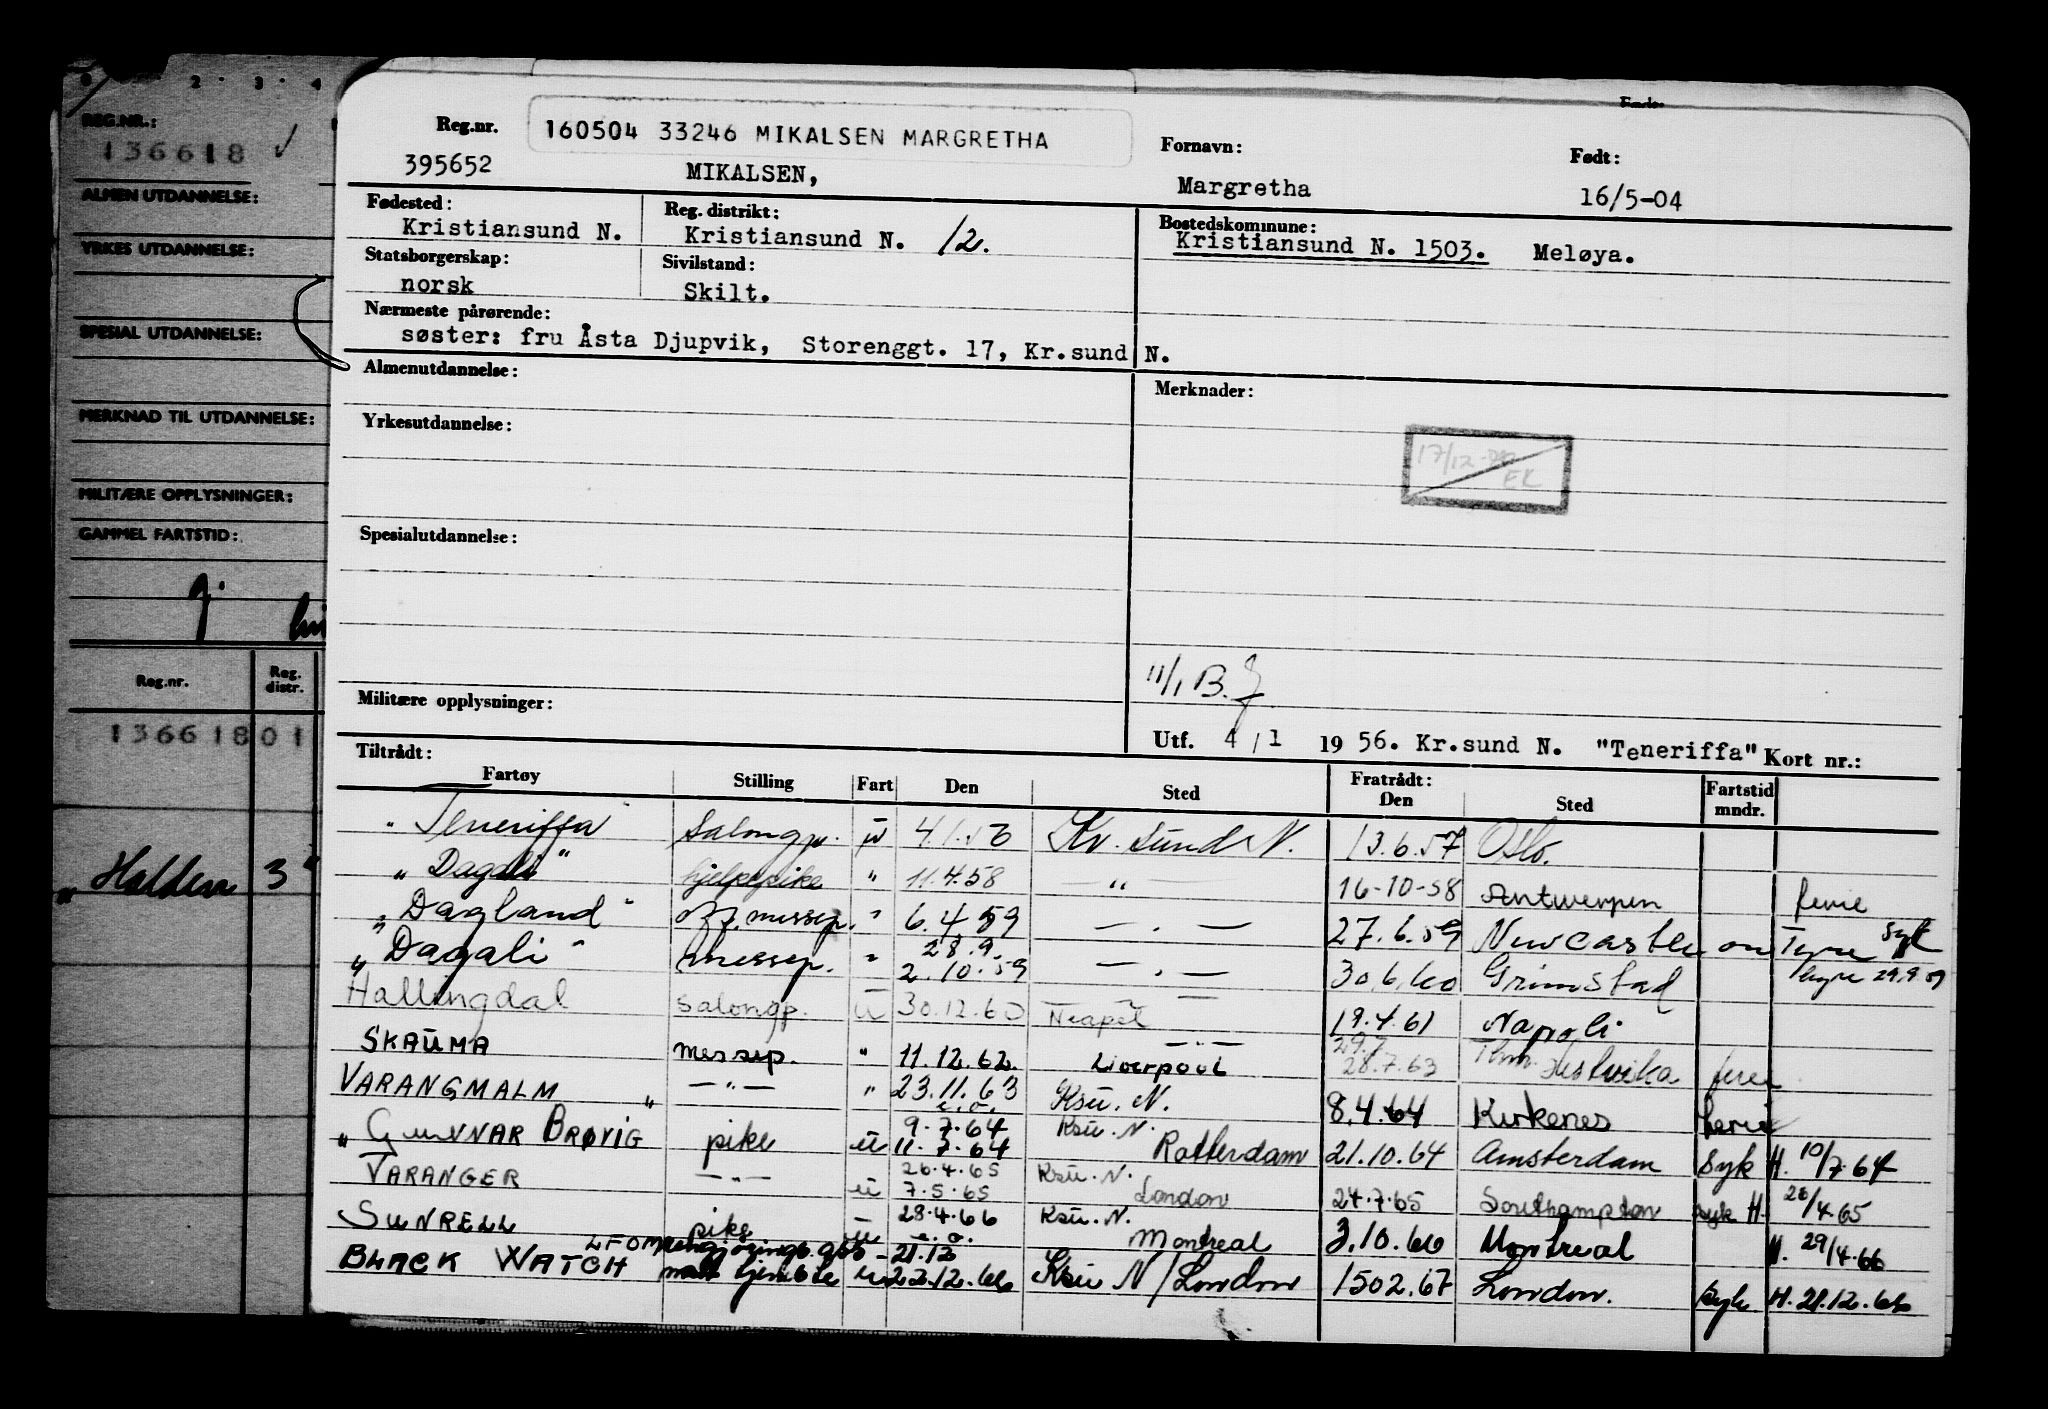 2 · 3 · 4
REG.NR.:
136618 ✓
ALMEN UTDANNELSE:
YRKES UTDANNELSE:
SPESIAL UTDANNELSE:
MERKNAD TIL UTDANNELSE:
MILITÆRE OPPLYSNINGER:
GAMMEL FARTSTID:
Reg.nr. Reg. distr.
136618 01
„ Halden 3
Reg.nr. 160504 33246 MIKALSEN MARGRETHA Fornavn: Født:
395652 MIKALSEN, Margretha 16/5-04
Fødested: Reg. distrikt: Bostedskommune:
Kristiansund N. Kristiansund N. 12. Kristiansund N. 1503. Meløya.
Statsborgerskap: Sivilstand:
norsk Skilt.
Nærmeste pårørende:
søster: fru Åsta Djupvik, Storenggt. 17, Kr.sund N.
Almenutdannelse: Merknader:
Yrkesutdannelse:
17/12 EK
Spesialutdannelse:
11/1 B.
Militære opplysninger:
Utf. 4/1 19 56. Kr.sund N. "Teneriffa" Kort nr.:
Tiltrådt: Fratrådt: Fartstid
Fartøy Stilling Fart Den Sted Den Sted mndr.
"Teneriffa" Salongp. u 4.1.56 Kr. sund N. 13.6.57 Oslo.
"Dagali" hjelpepike " 11.4.58 — " — 16-10-58 Antwerpen ferie
"Dagland" off. messep. " 6.4.59 — " — 27.6.59 Newcastle on Tyne syk
28.9.
"Dagali" messep. " 2.10.59 — " — 30.6.60 Grimstad hyre 29.9.59
Hallingdal salongp. u 30.12.60 Neapel 19.4.61 Napoli
29.7
SKAUMA messep. " 11.12.62. Liverpool 28.7.63 ferie
VARANGMALM — " — " 23.11.63 Ksu. N. 8.4.64 Kirkenes ferie
e.o.
9.7.64 Ksu. N.
" GUNNAR BRØVIG pike u 11.7.64 Rotterdam 21.10.64 Amsterdam Syk H. 10/7.64
26.4.65 Ksu. N.
VARANGER — " — u 7.5.65 London 24.7.65 Southampton syk H. 28/4.65
28.4.66 Ksu. N.
SUNRELL pike u e.o. Montreal 3.10.66 Montreal H. 29/4.66
21.12
BLACK WATCH u 22.12.66 Ksu N/London 1502.67 London. syk H. 21.12.66